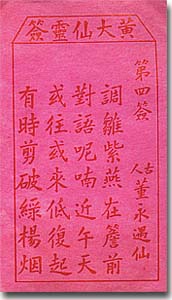 黃大仙靈簽
第四簽
古人董永遇仙
調雛紫燕在簷前
對語呢喃近午天
或往或來低復起
有時剪破綠楊烟